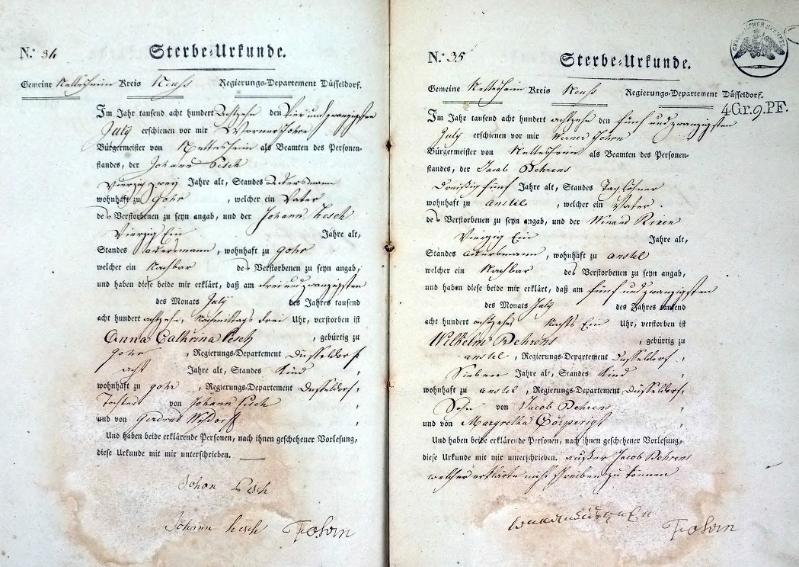 N.º 34 Sterbe-Urkunde.
Gemeine Nettesheim Kreis Neuß Regierungs-Departement Düsseldorf.
Im Jahr tausend acht hundert achtzehn den vier und zwanzigsten
July erschienen vor mir
Bürgermeister von Nettesheim als Beamten des Personen-
standes, der Johann Pesch
Vierzig zwey Jahre alt, Standes Ackersmann
wohnhaft zu Gohr, welcher ein Vater
des Verstorbenen zu seyn angab, und der Johann Pesch
Vierzig Ein Jahre alt,
Standes Ackersmann, wohnhaft zu Gohr
welcher ein Nachbar des Verstorbenen zu seyn angab;
und haben diese beide mir erklärt, daß am drei und zwanzigsten
des Monats July des Jahres tausend
acht hundert achtzehn, Nachmittags drei Uhr, verstorben ist
Anna Catharina Pesch gebürtig zu
Gohr, Regierungs-Departement Düsseldorf,
acht Jahre alt, Standes Kind
wohnhaft zu Gohr, Regierungs-Departement Düsseldorf,
Tochter von Johann Pesch
und von Gerdrud
Und haben beide erklärende Personen, nach ihnen geschehener Vorlesung,
diese Urkunde mit mir unterschrieben.
Johan Pesch
Johann Pesch
N.º 35 Sterbe-Urkunde.
4 Gr. 9. PF.
Gemeine Nettesheim Kreis Neuß Regierungs-Departement Düsseldorf.
Im Jahr tausend acht hundert achtzehn den fünf und zwanzigsten
July erschienen vor mir
Bürgermeister von Nettesheim als Beamten des Personen-
standes, der Jacob Behrens
Dreißig fünf Jahre alt, Standes Taglöhner
wohnhaft zu Anstel, welcher ein Vater
des Verstorbenen zu seyn angab, und der Winand
Vierzig Ein Jahre alt,
Standes Ackersmann, wohnhaft zu Anstel
welcher ein Nachbar des Verstorbenen zu seyn angab,
und haben diese beide mir erklärt, daß am fünf und zwanzigsten
des Monats July des Jahres tausend
acht hundert achtzehn Nachts Ein Uhr, verstorben ist
Wilhelm Behrens, gebürtig zu
Anstel, Regierungs-Departement Düsseldorf,
Sieben Jahre alt, Standes Kind
wohnhaft zu Anstel, Regierungs-Departement Düsseldorf,
Sohn von Jacob Behrens
und von Margretha
Und haben beide erklärende Personen, nach ihnen geschehener Vorlesung,
diese Urkunde mit mir unterschrieben. außer Jacob Behrens
welcher erklärte nicht schreiben zu können